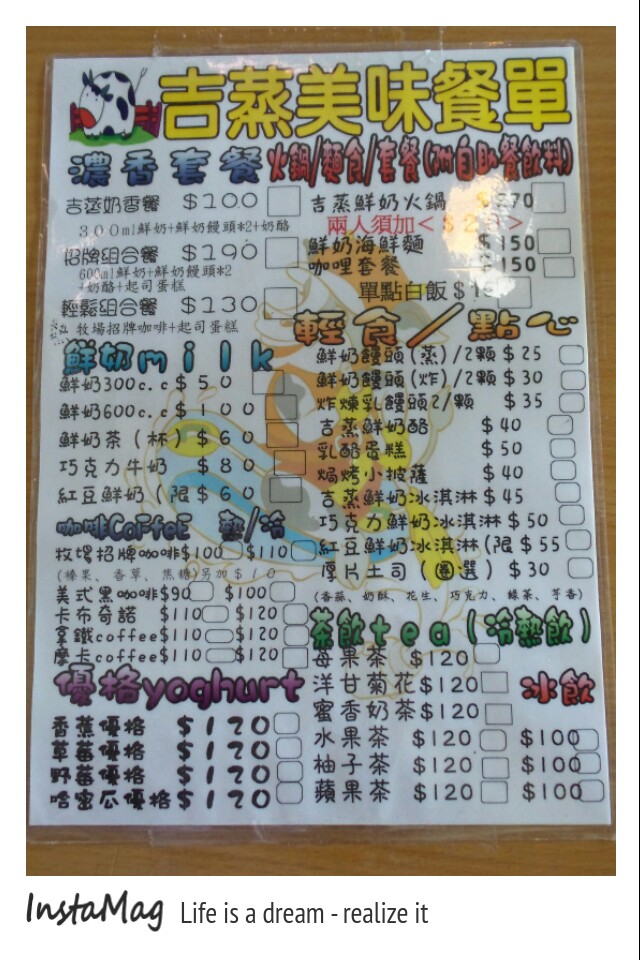 吉蒸美味餐單
濃香套餐
吉蒸奶香餐 $100
300ml鮮奶+鮮奶饅頭*2+奶酪
招牌組合餐 $190
600ml鮮奶+鮮奶饅頭*2
+奶酪+起司蛋糕
輕鬆組合餐 $130
牧場招牌咖啡+起司蛋糕
鮮奶milk
鮮奶300c.c $50
鮮奶600c.c $100
鮮奶茶(杯) $60
巧克力牛奶 $80
紅豆鮮奶(限 $60
咖啡CoFFeE 熱/冷
牧場招牌咖啡$100 $110
(榛果、香草、焦糖)另加$10
美式黑咖啡$90 $100
卡布奇諾 $110 $120
拿鐵coffee$110 $120
摩卡coffee$110 $120
優格yoghurt
香蕉優格 $120
草莓優格 $120
野莓優格 $120
哈密瓜優格 $120
火鍋/麵食/套餐(附自助餐飲料)
吉蒸鮮奶火鍋 $270
兩人須加< $2 >
鮮奶海鮮麵 $150
咖哩套餐 $150
單點白飯 $1
輕食/點心
鮮奶饅頭(蒸)/2顆 $25
鮮奶饅頭(炸)/2顆 $30
炸煉乳饅頭2/顆 $35
吉蒸鮮奶酪 $40
乳酪蛋糕 $50
焗烤小披薩 $40
吉蒸鮮奶冰淇淋 $45
巧克力鮮奶冰淇淋 $50
紅豆鮮奶冰淇淋(限 $55
厚片土司(圈選) $30
(香蒜、奶酥、花生、巧克力、綠茶、芋香)
茶飲tea(冷熱飲)
莓果茶 $120
洋甘菊花 $120 冰飲
蜜香奶茶 $120
水果茶 $120 $100
柚子茶 $120 $100
蘋果茶 $120 $100
InstaMag Life is a dream - realize it